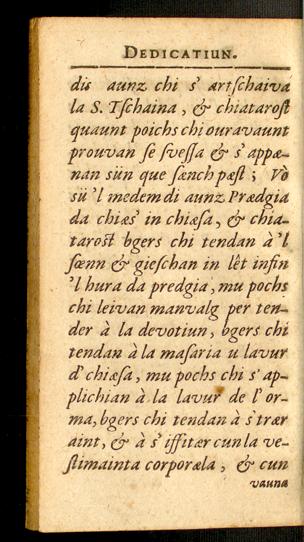 DEDICATIUN.
dis aunz chi s' ærtſchaiva
la S. Tſchaina, & chiataroſt
quaunt poichs chi ouravaunt
prouvan ſe ſveſſa & s' appæ-
nan sün que ſænch pæſt; Vò
sü 'l medem di aunz Prædgia
da chiæs' in chiæſa, & chia-
taroſt bgers chi tendan à 'l
ſœnn & gieſchan in lêt infin
'l hura da predgia, mu pochs
chi leivan manvalg per ten-
der à la devotiun, bgers chi
tendan à la maſaria u lavur
d' chiæſa, mu pochs chi s' ap-
plichian à la lavur de l' or-
ma, bgers chi tendan à s' trær
aint, & à s' iffitær cun la ve-
ſtimainta corporæla, & cun
vauna